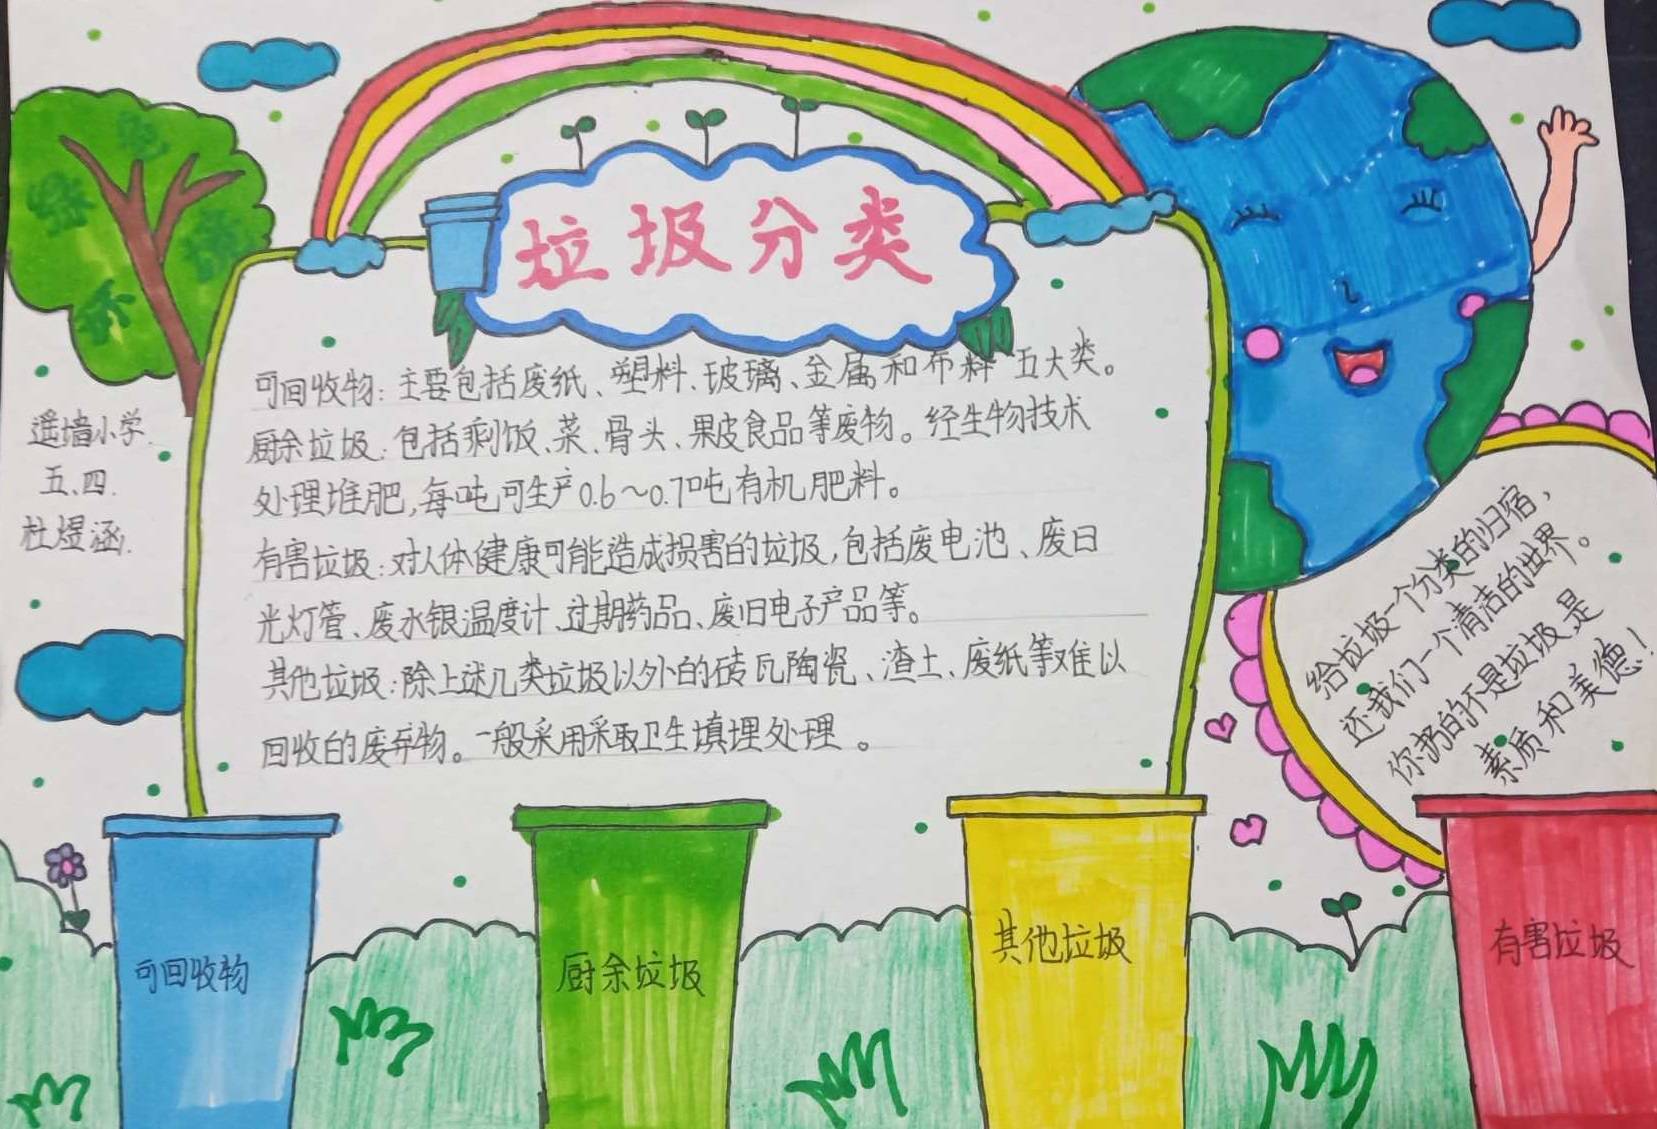 垃圾分类
可回收物：主要包括废纸、塑料、玻璃、金属和布料五大类。
厨余垃圾：包括剩饭、菜、骨头、果皮食品等废物。经生物技术
处理堆肥，每吨可生产0.6～0.7吨有机肥料。
有害垃圾：对人体健康可能造成损害的垃圾，包括废电池、废日
光灯管、废水银温度计、过期药品、废旧电子产品等。
其他垃圾：除上述几类垃圾以外的砖瓦陶瓷、渣土、废纸等难以
回收的废弃物。一般采用采取卫生填埋处理。
遥墙小学.
五、四.
杜煜涵.
给垃圾一个分类的归宿，
还我们一个清洁的世界。
你扔的不是垃圾，是
素质和美德！
可回收物
厨余垃圾
其他垃圾
有害垃圾